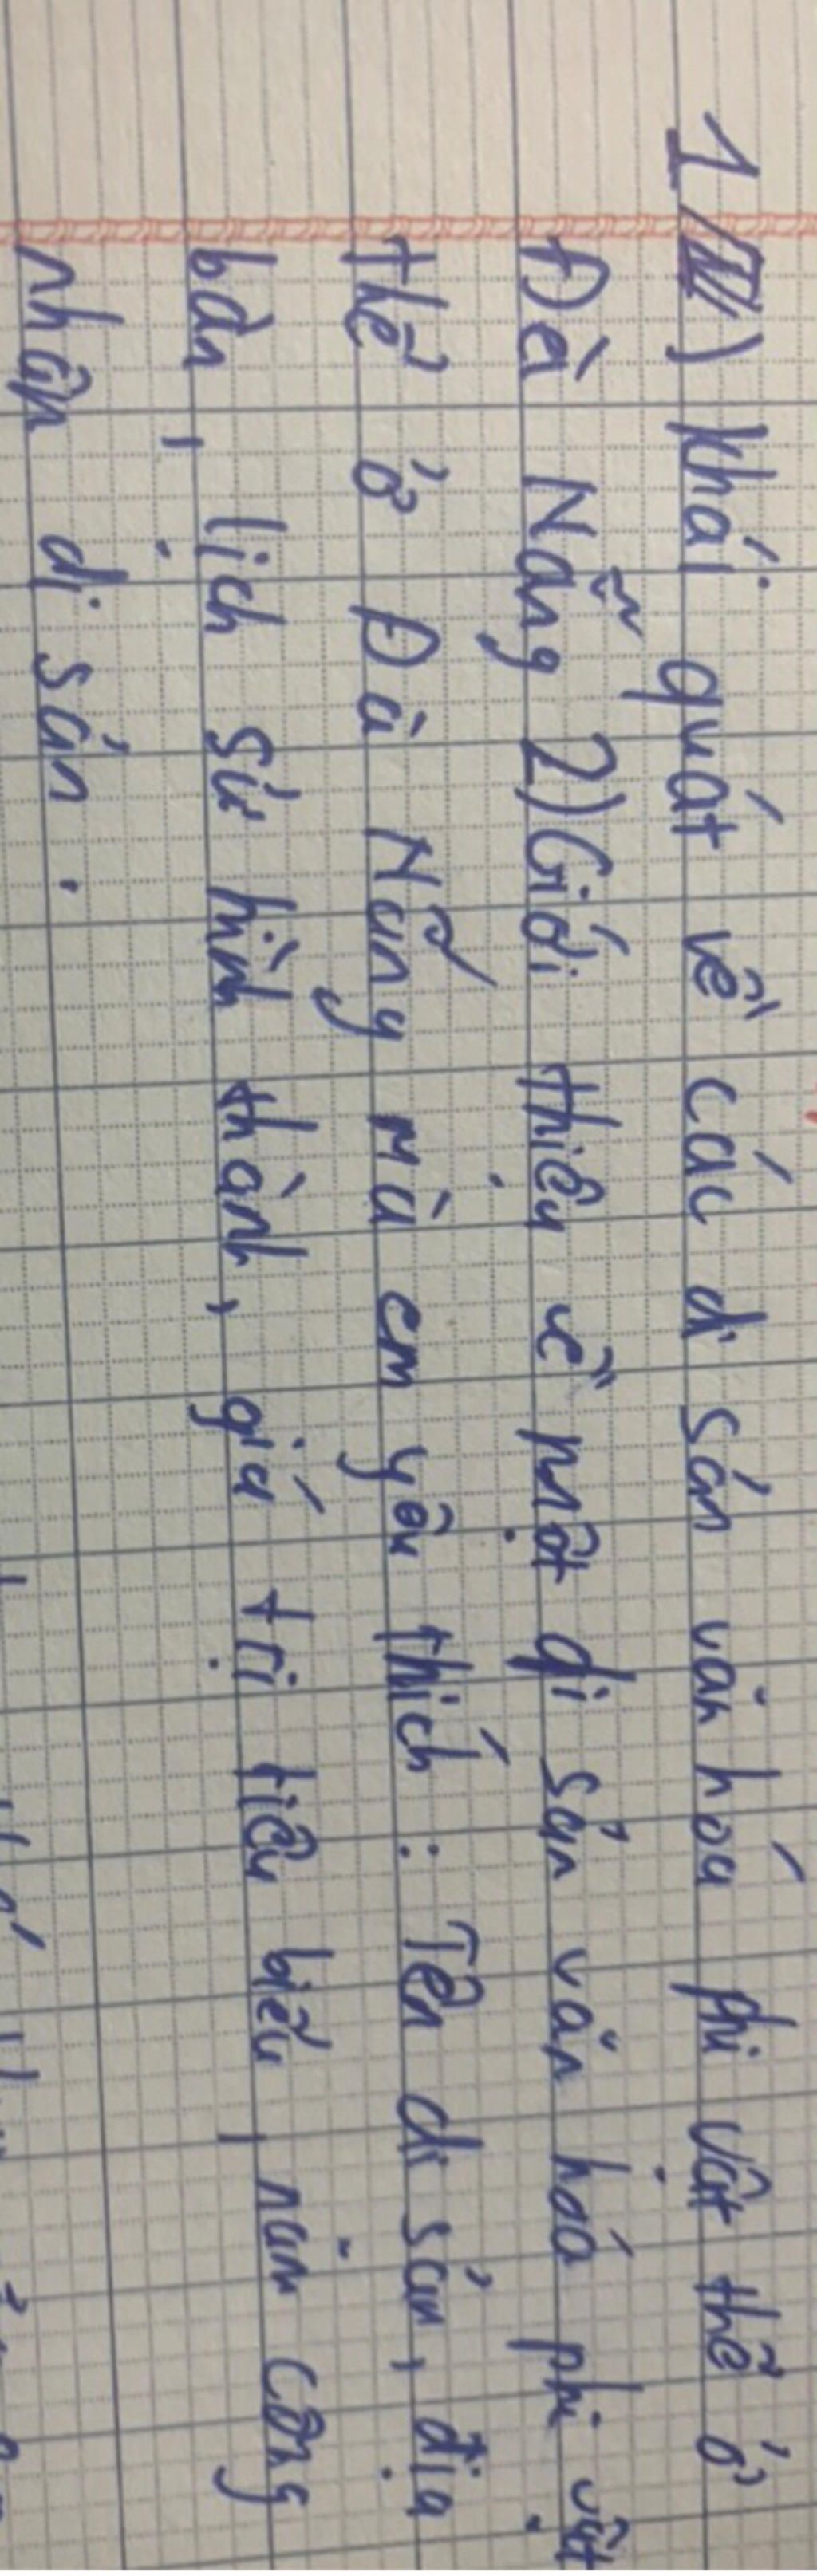 1) Khái quát về các di sản văn hoá phi vật thể ở
Đà Nẵng 2) Giới thiệu về một di sản văn hoá phi vật
thể ở Đà Nẵng mà em yêu thích : Tên di sản, địa
bàn, lịch sử hình thành, giá trị tiêu biểu, năm công
nhận di sản.